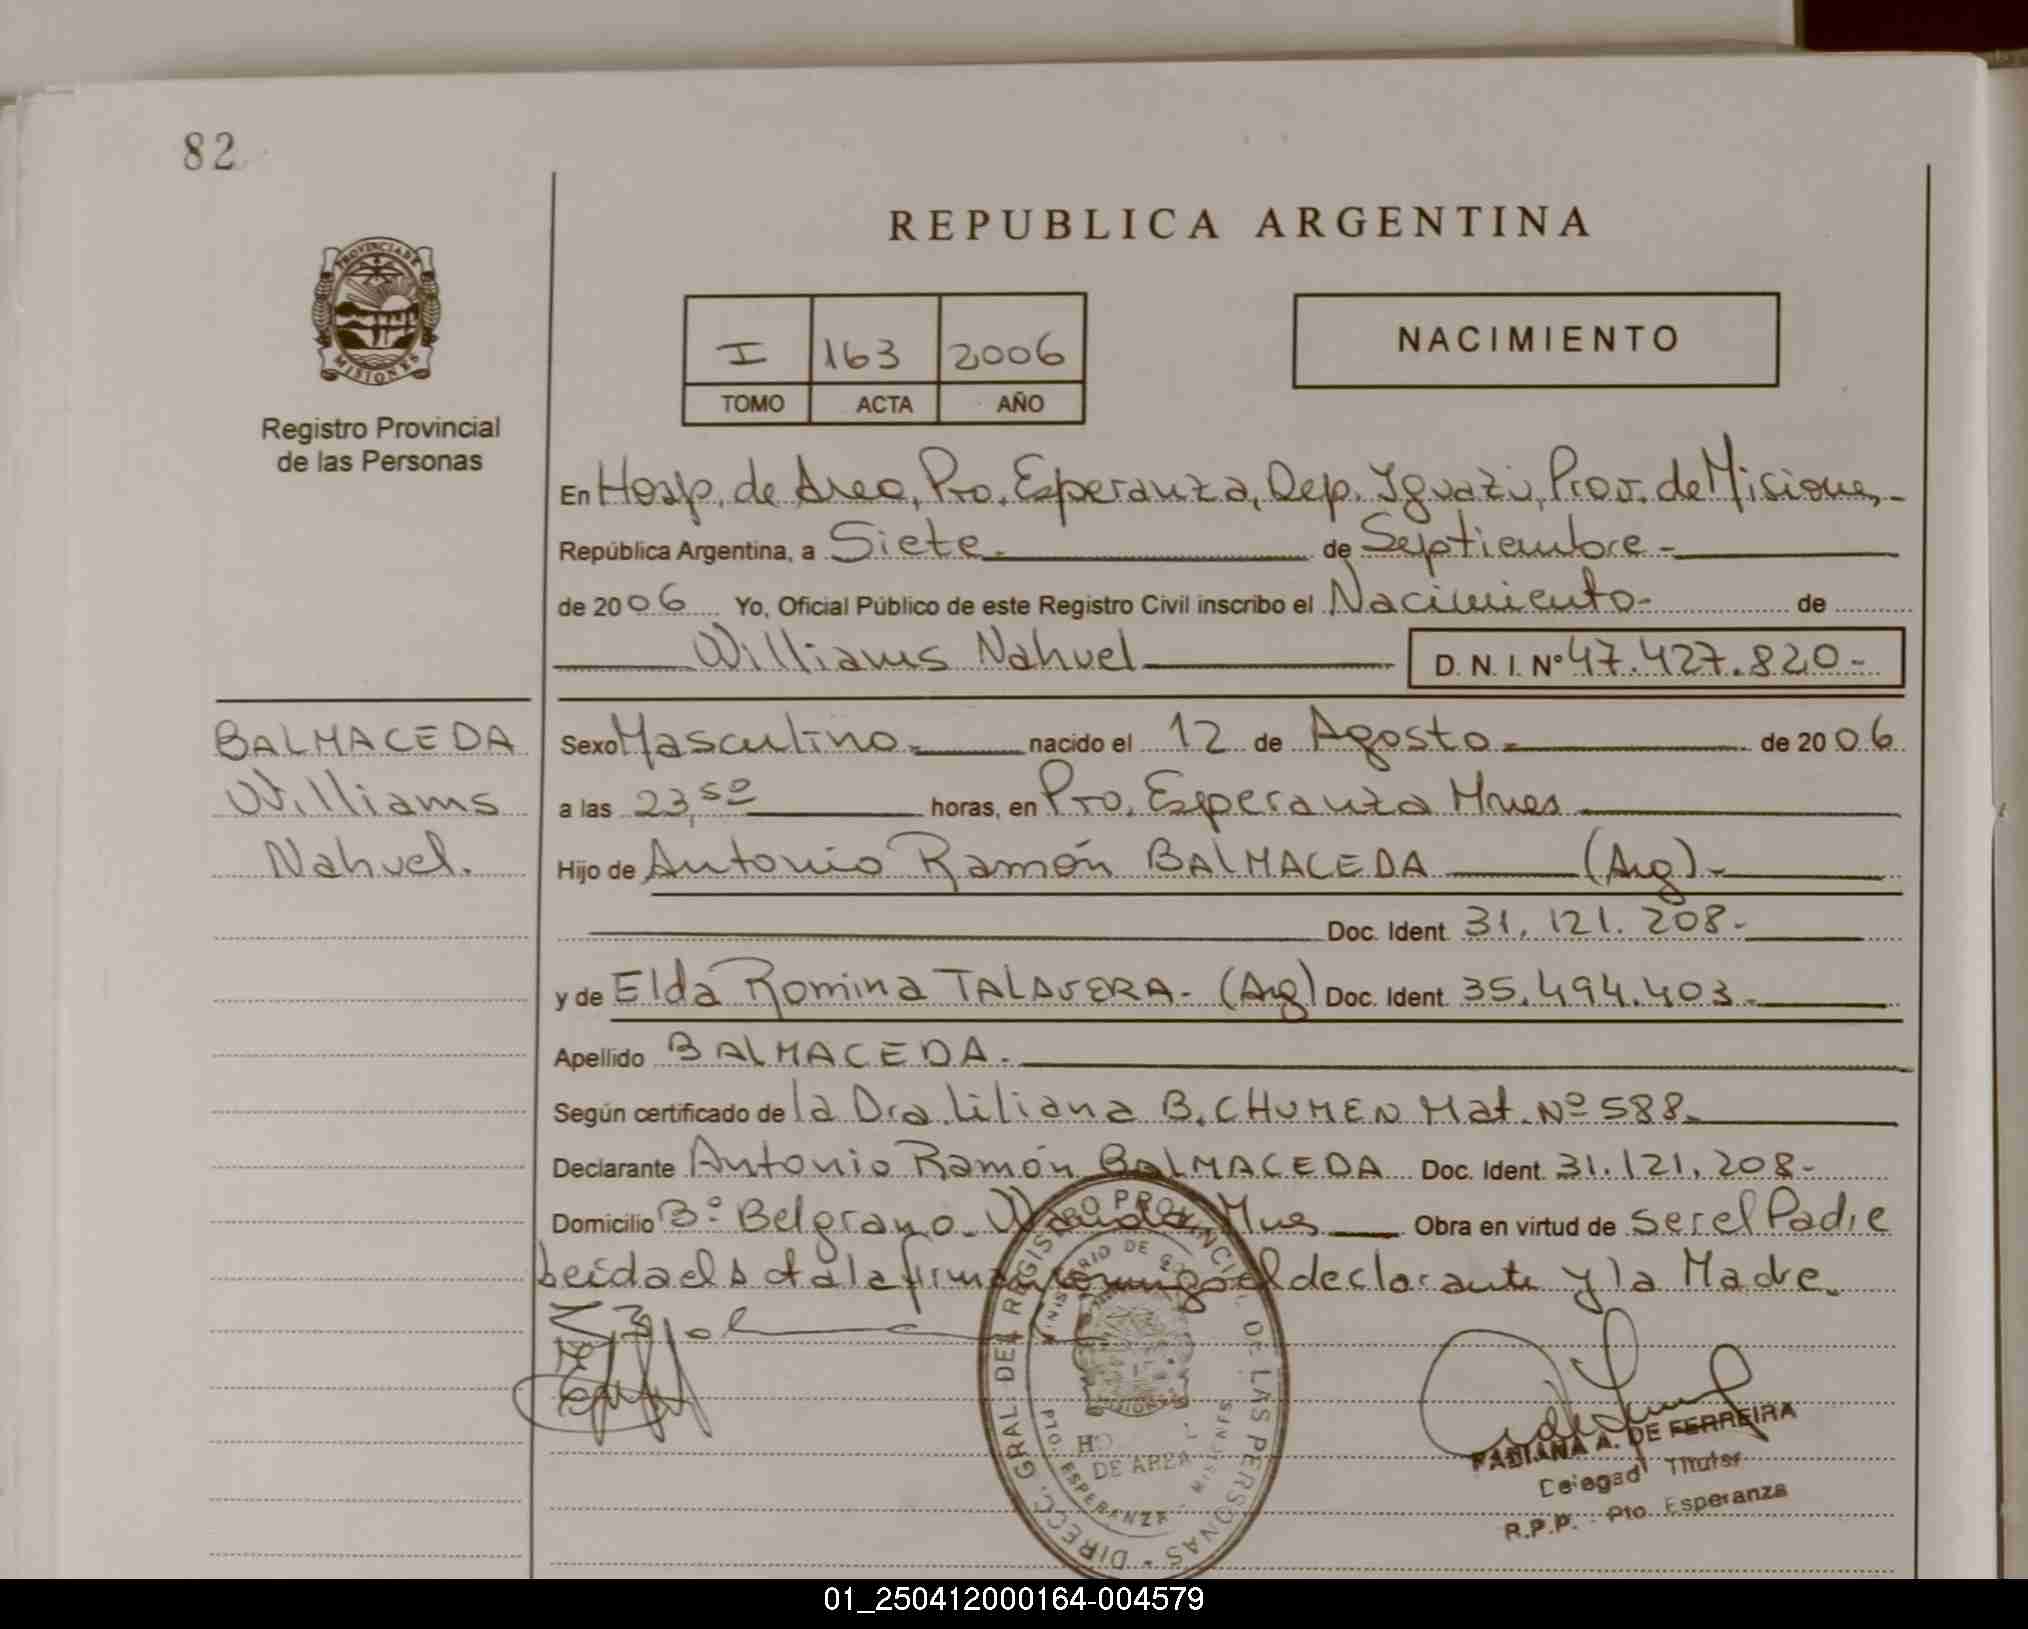 82
REPUBLICA ARGENTINA
PROVINCIA DE
MISIONES
Registro Provincial
de las Personas
I 163 2006
TOMO ACTA AÑO
NACIMIENTO
En Hosp. de Area, Pto. Esperanza, Dep. Iguazú, Prov. de Misiones,-
República Argentina, a Siete.- de Septiembre-
de 2006 Yo, Oficial Público de este Registro Civil inscribo el Nacimiento- de
Williams Nahuel D. N. I. Nº 47.427.820-
BALMACEDA
Williams
Nahuel.
Sexo Masculino- nacido el 12 de Agosto- de 2006
a las 23,50 horas, en Pto. Esperanza Mnes
Hijo de Antonio Ramón BALMACEDA (Arg).-
Doc. Ident. 31.121.208-
y de Elda Romina TALAVERA- (Arg) Doc. Ident. 35.494.403-
Apellido BALMACEDA.
Según certificado de la Dra. Liliana B. CHUMEN Mat. Nº 588-
Declarante Antonio Ramón BALMACEDA Doc. Ident. 31.121.208-
Domicilio Bº Belgrano- Wanda, Mnes Obra en virtud de ser el Padre
Leída el Acta la firman conmigo el declarante y la Madre.
DIRECC. GRAL DEL REGISTRO PROVINCIAL DE LAS PERSONAS
MINISTERIO DE
DE AREA
PTO. ESPERANZA - MISIONES
FABIANA A. DE FERREIRA
Delegad Titular
R.P.P. - Pto. Esperanza
01_250412000164-004579